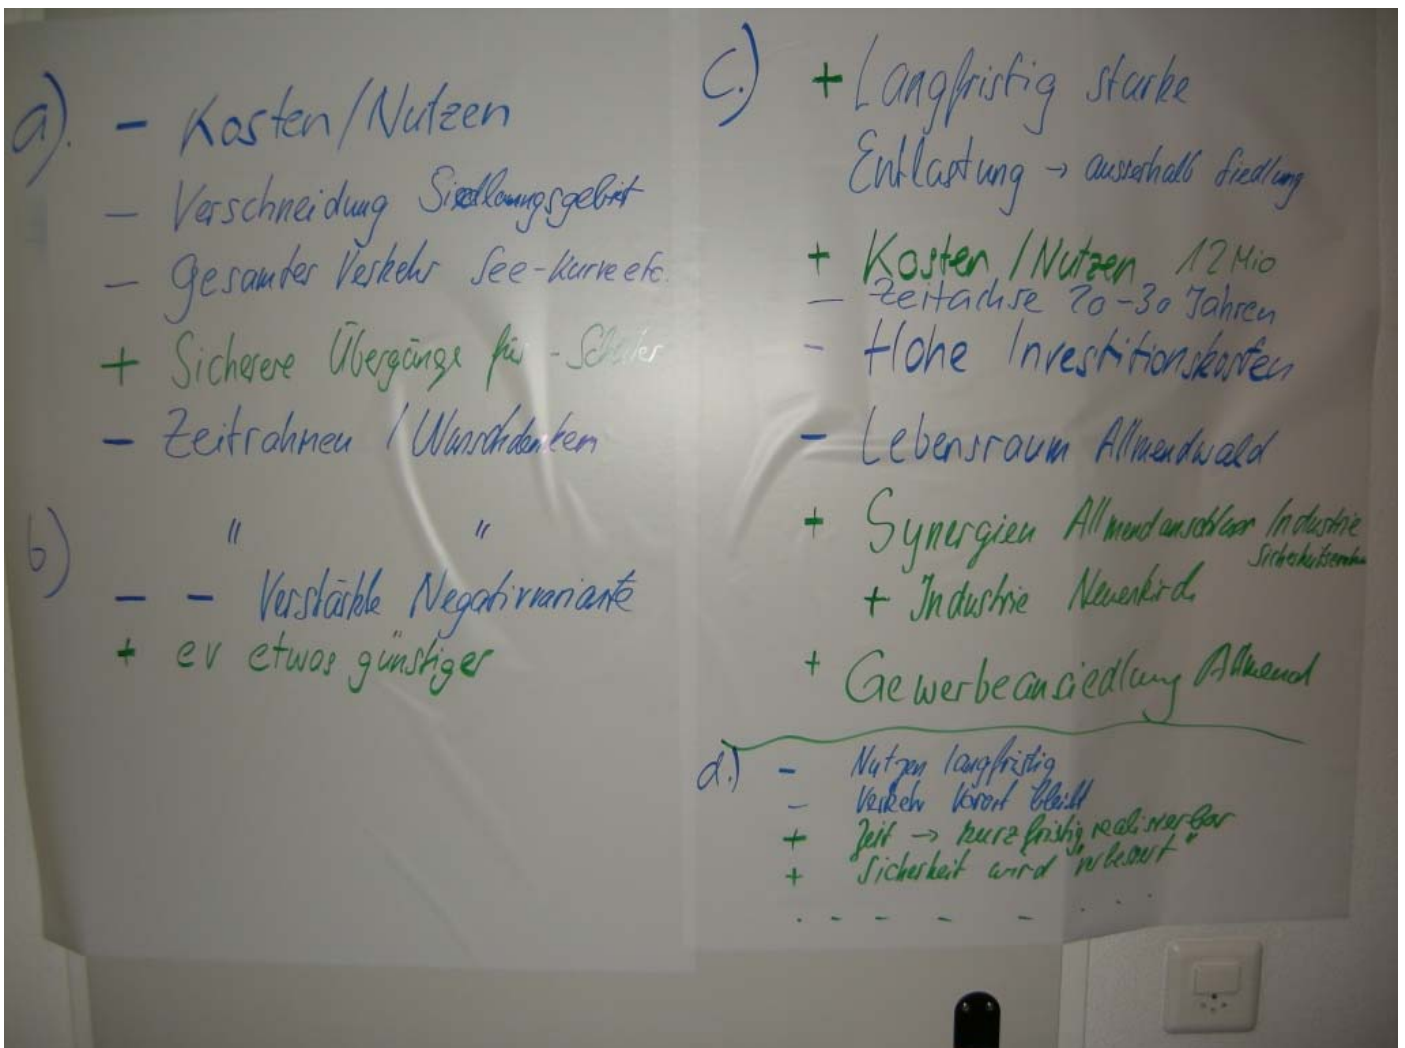 a).
- Kosten/Nutzen
- Verschneidung Siedlungsgebiet
- Gesamter Verkehr See-Kurve etc.
+ Sicherere Übergänge für - Schüler
- Zeitrahmen / Wunschdenken
b) " "
- - Verstärkte Negativvariante
+ ev etwas günstiger
c.) + Langfristig starke
Entlastung → ausserhalb Siedlung
+ Kosten/Nutzen 12 Mio
- Zeitachse 20-30 Jahren
- Hohe Investitionskosten
- Lebensraum Allmendwald
+ Synergien Industrie
+ Industrie Neuenkirch
+ Gewerbeansiedlung Allmend
d.) - Nutzen langfristig
- Verkehr Vorort bleibt
+ Zeit → kurzfristig realisierbar
+ Sicherheit wird "verbessert"